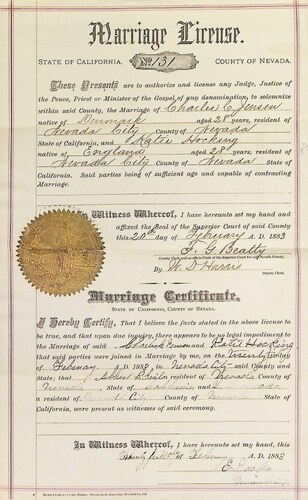 Marriage License.
STATE OF CALIFORNIA. No. 131 COUNTY OF NEVADA.
These Presents are to authorize and license any Judge, Justice of
the Peace, Priest or Minister of the Gospel of any denomination, to solemnize
within said County, the Marriage of Charles C. Jensen
native of Denmark aged 28 years, resident of
Nevada City County of Nevada
State of California, and Katie Hocking
native of England aged 28 years, resident of
Nevada City County of Nevada State of
California. Said parties being of sufficient age and capable of contracting
Marriage.
In Witness Whereof, I have hereunto set my hand and
affixed the Seal of the Superior Court of said County
this 20th day of February A. D. 1883
F. G. Beatty
By W. D. Harris
Deputy Clerk.
Marriage Certificate.
STATE OF CALIFORNIA, COUNTY OF NEVADA.
I Hereby Certify, That I believe the facts stated in the above license
to be true, and that upon due inquiry, there appears to be no legal impediment
to the Marriage of said Charles Jensen and Katie Hocking
that said parties were joined in Marriage by me, on the twentieth day
of February A. D. 1883, in Nevada City said County and
State; that resident of Nevada County of
Nevada State of California and
resident of Nevada City County of Nevada State of
California, were present as witnesses of said ceremony.
In Witness Whereof, I have hereunto set my hand, this
of A. D. 1883